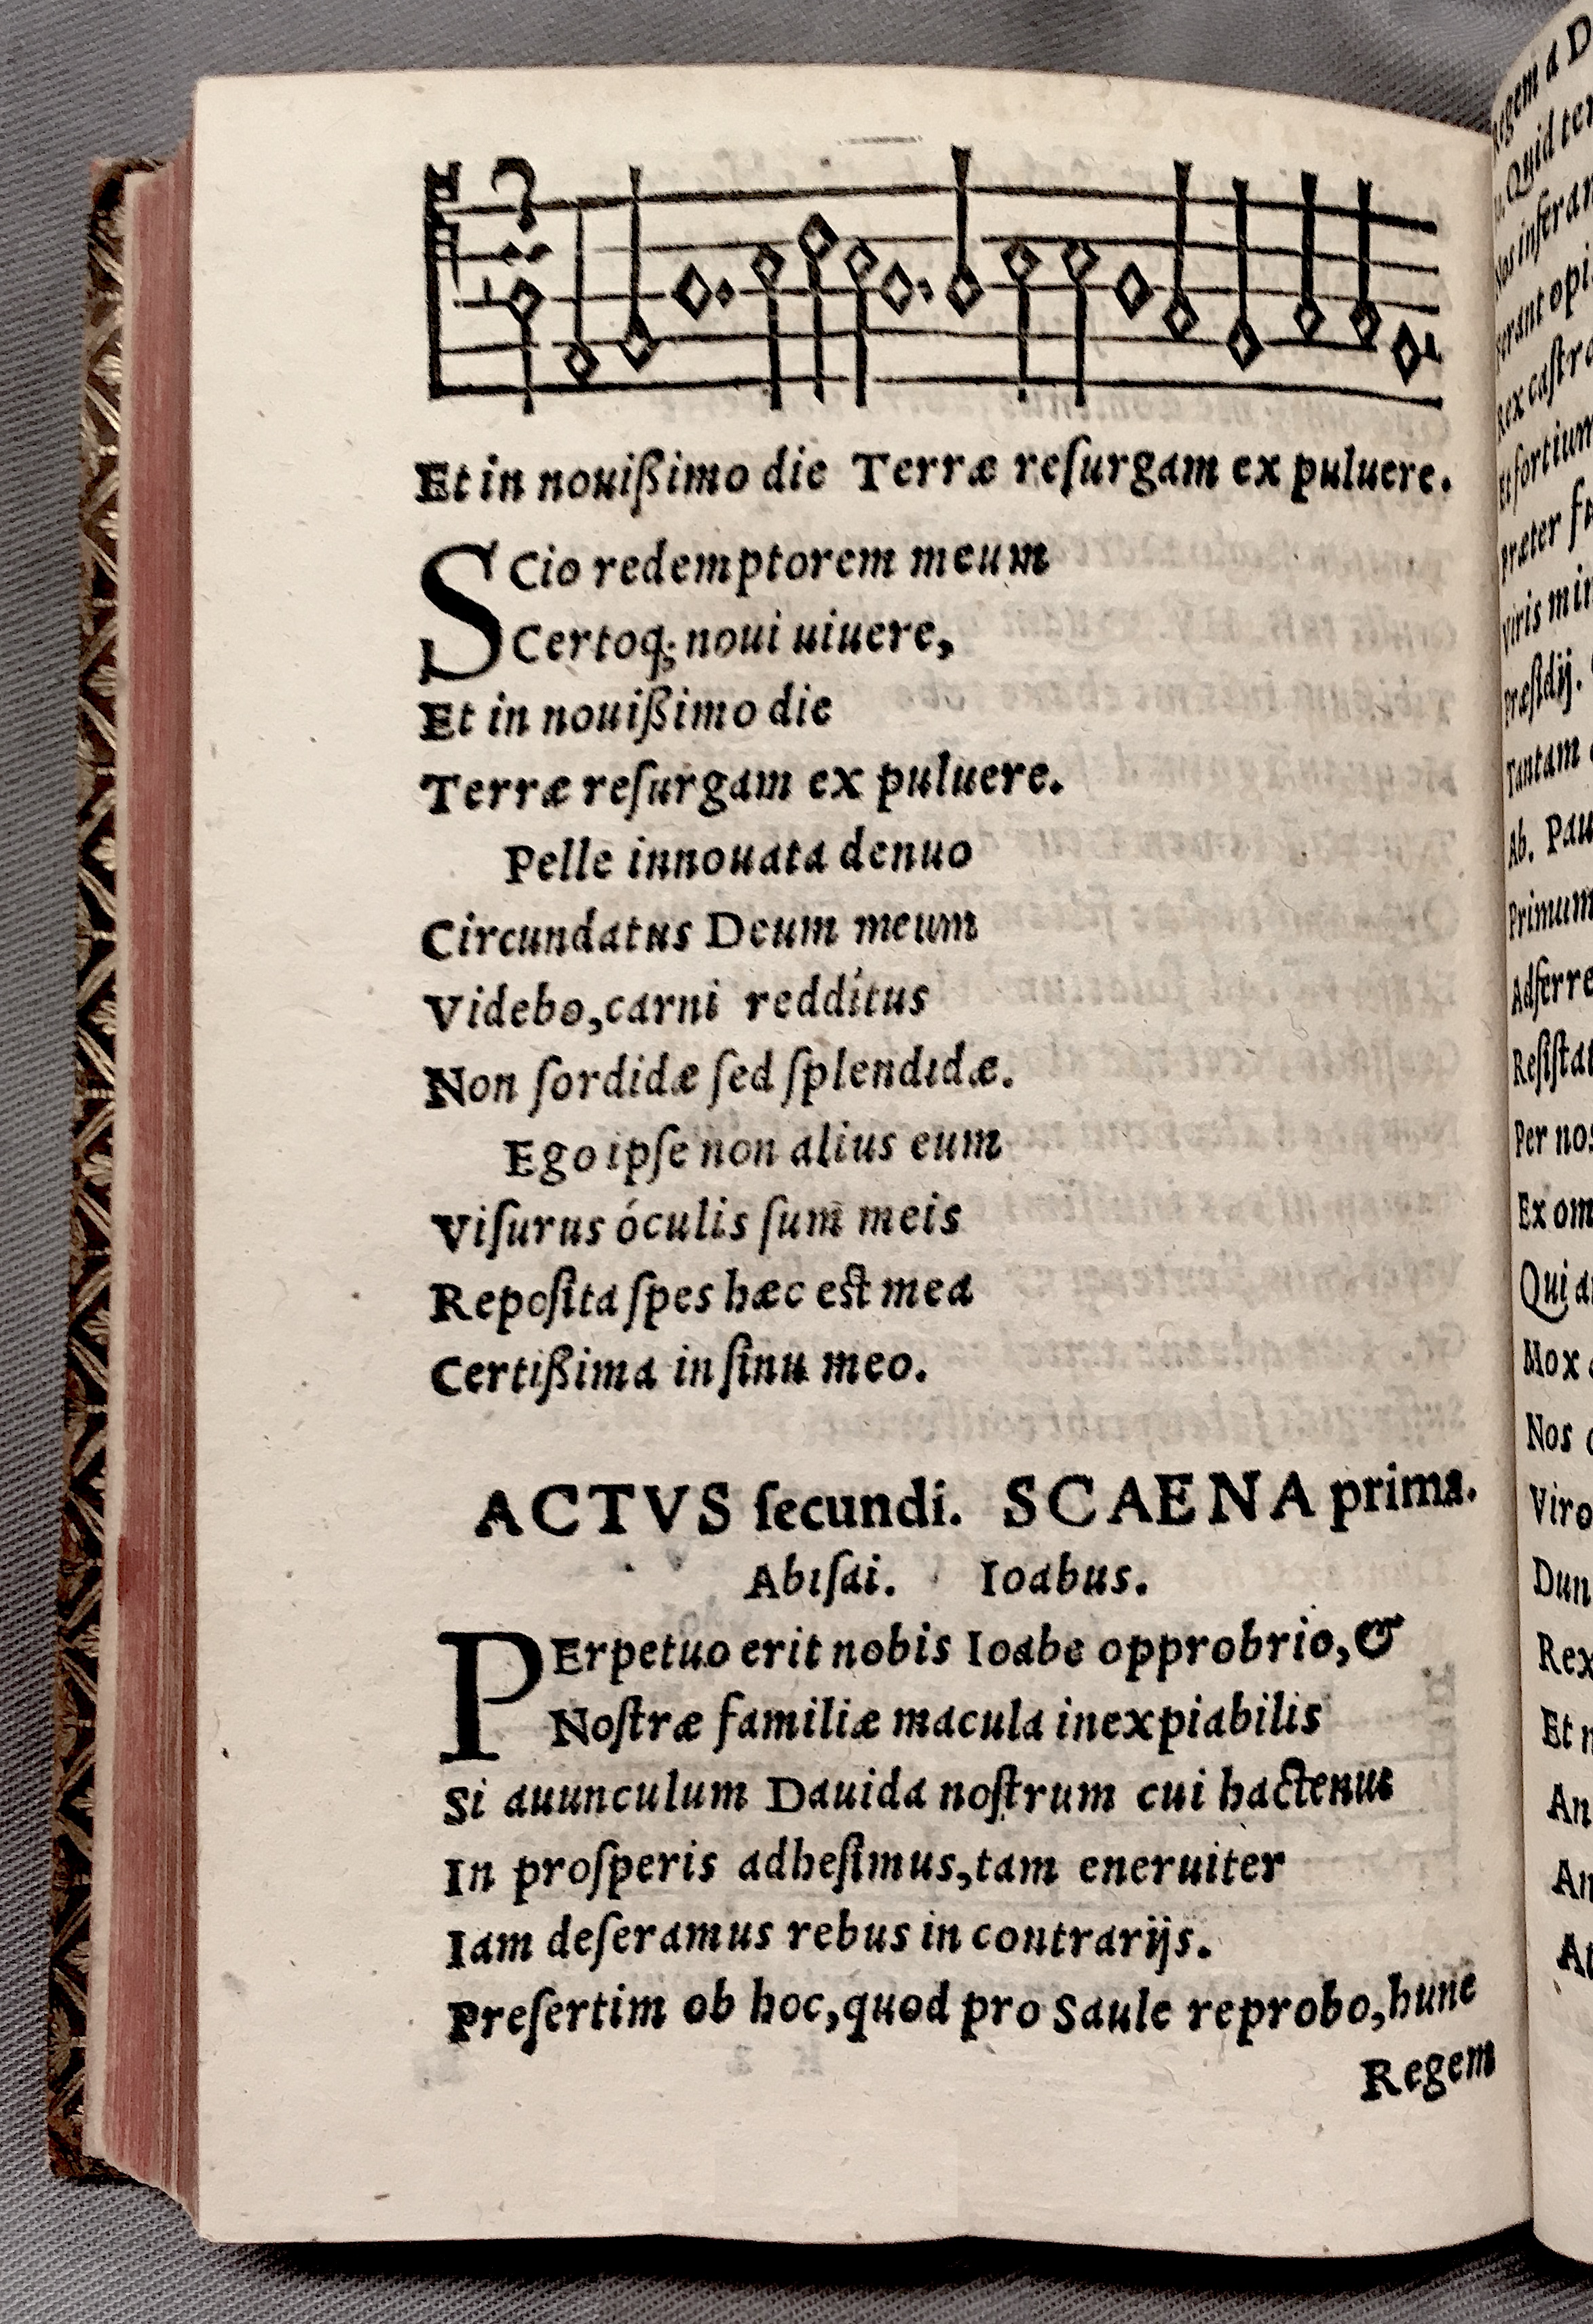 Et in nouißimo die Terræ reſurgam ex puluere.
SCio redemptorem meum
Certoq; noui uiuere,
Et in nouißimo die
Terræ reſurgam ex puluere.
Pelle innouata denuo
Circundatus Deum meum
Videbo, carni redditus
Non ſordidæ ſed ſplendidæ.
Ego ipſe non alius eum
Viſurus óculis ſum meis
Repoſita ſpes hæc eſt mea
Certißima in ſinu meo.
ACTVS ſecundi. SCAENA prima.
Abiſai. Ioabus.
PErpetuo erit nobis Ioabe opprobrio, &
Noſtræ familiæ macula inexpiabilis
Si auunculum Dauida noſtrum cui hactenus
In proſperis adheſimus, tam eneruiter
Iam deſeramus rebus in contrarijs.
Preſertim ob hoc, quod pro Saule reprobo, hunc
Regem
Regem a D
Quid
Nos inferan
Rex caſtra
Et fortium
Præter
Viris
Præſidij.
Tantam
Ab. Pau
Primum
Adferre
Reſiſtat
Per nos
Ex om
Qui
Mox
Nos
Viro
Dun
Rex
Et
An
An
At